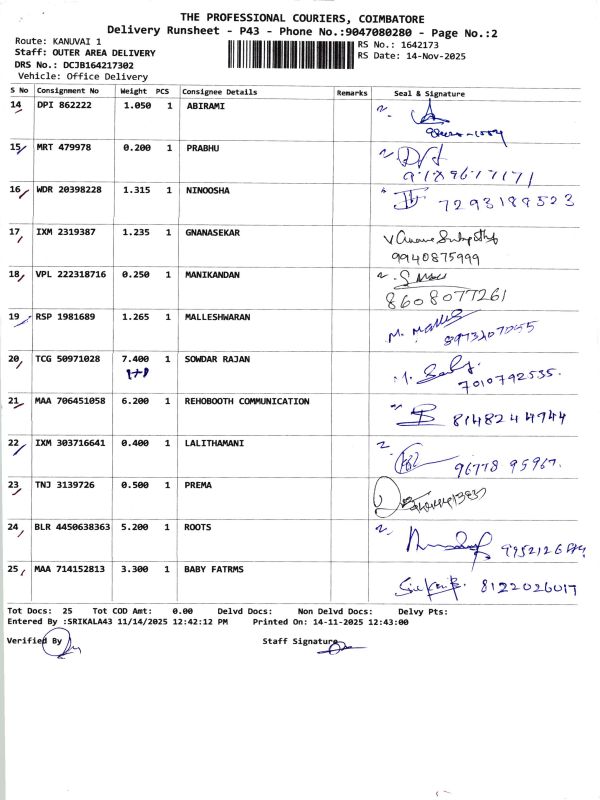 THE PROFESSIONAL COURIERS, COIMBATORE
Delivery Runsheet - P43 - Phone No.:9047080280 - Page No.:2
Route: KANUVAI 1
Staff: OUTER AREA DELIVERY
DRS No.: DCJB164217302
Vehicle: Office Delivery
RS No.: 1642173
RS Date: 14-Nov-2025
S No Consignment No Weight PCS Consignee Details Remarks Seal & Signature
14 DPI 862222 1.050 1 ABIRAMI
15 MRT 479978 0.200 1 PRABHU
16 WDR 20398228 1.315 1 NINOOSHA 7293189523
17 IXM 2319387 1.235 1 GNANASEKAR
9940875999
18 VPL 222318716 0.250 1 MANIKANDAN
8608077261
19 RSP 1981689 1.265 1 MALLESHWARAN
20 TCG 50971028 7.400 1 SOWDAR RAJAN
1+1 7010792535.
21 MAA 706451058 6.200 1 REHOBOOTH COMMUNICATION
8148244744
22 IXM 303716641 0.400 1 LALITHAMANI
96778 95967.
23 TNJ 3139726 0.500 1 PREMA
24 BLR 4450638363 5.200 1 ROOTS
25 MAA 714152813 3.300 1 BABY FATRMS
8122026017
Tot Docs: 25 Tot COD Amt: 0.00 Delvd Docs: Non Delvd Docs: Delvy Pts:
Entered By :SRIKALA43 11/14/2025 12:42:12 PM Printed On: 14-11-2025 12:43:00
Verified By Staff Signature